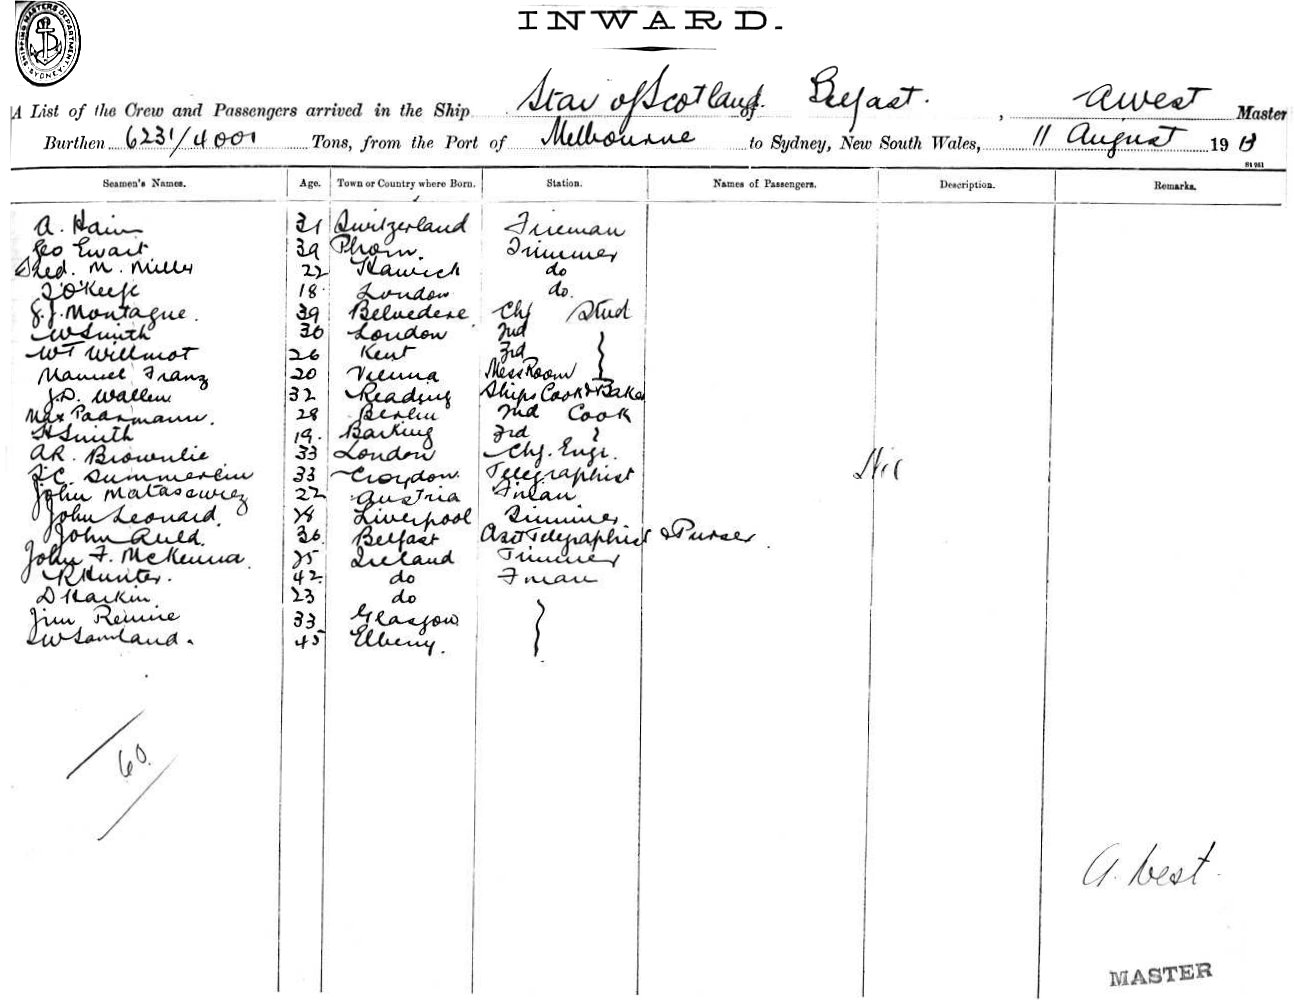 SHIPPING MASTERS DEPARTMENT SYDNEY
INWARD.
A List of the Crew and Passengers arrived in the Ship Star of Scotland of Belfast. , A West Master
Burthen 6231/4001 Tons, from the Port of Melbourne to Sydney, New South Wales, 11 August 1913
Seamen's Names. Age. Town or Country where Born. Station. Names of Passengers. Description. Remarks.
A. Haim 31 Switzerland Fireman
Geo Ewart 39 Trimmer
Fred. M. Miller 22 Hawick do
J O'Keefe 18 London do.
J. J. Montague. 39 Belvedere Chf Stud
W Smith 30 London 2nd
WT Willmot 26 Kent 3rd
Manuel Franz 20 Vienna Mess Room
J.D. Wallen 32 Reading Ships Cook & Baker
Max Paarmann. 28 Berlin 2nd Cook
H Smith 19. Barking 3rd
A R. Brownlie 33 London Chf. Engr.
S C. Summerlin 33 Croydon. Telegraphist Nil
John Matasewiez 22 Austria Fman
John Leonard. 28 Liverpool Trimmer
John Auld. 36 Belfast Asst Telegraphist & Purser
John F. McKenna. 25 Ireland Trimmer
R Hunter. 42 do Fman
D Harkin 23 do
Jim Rennie 33 Glasgow
45
60.
A. West.
MASTER